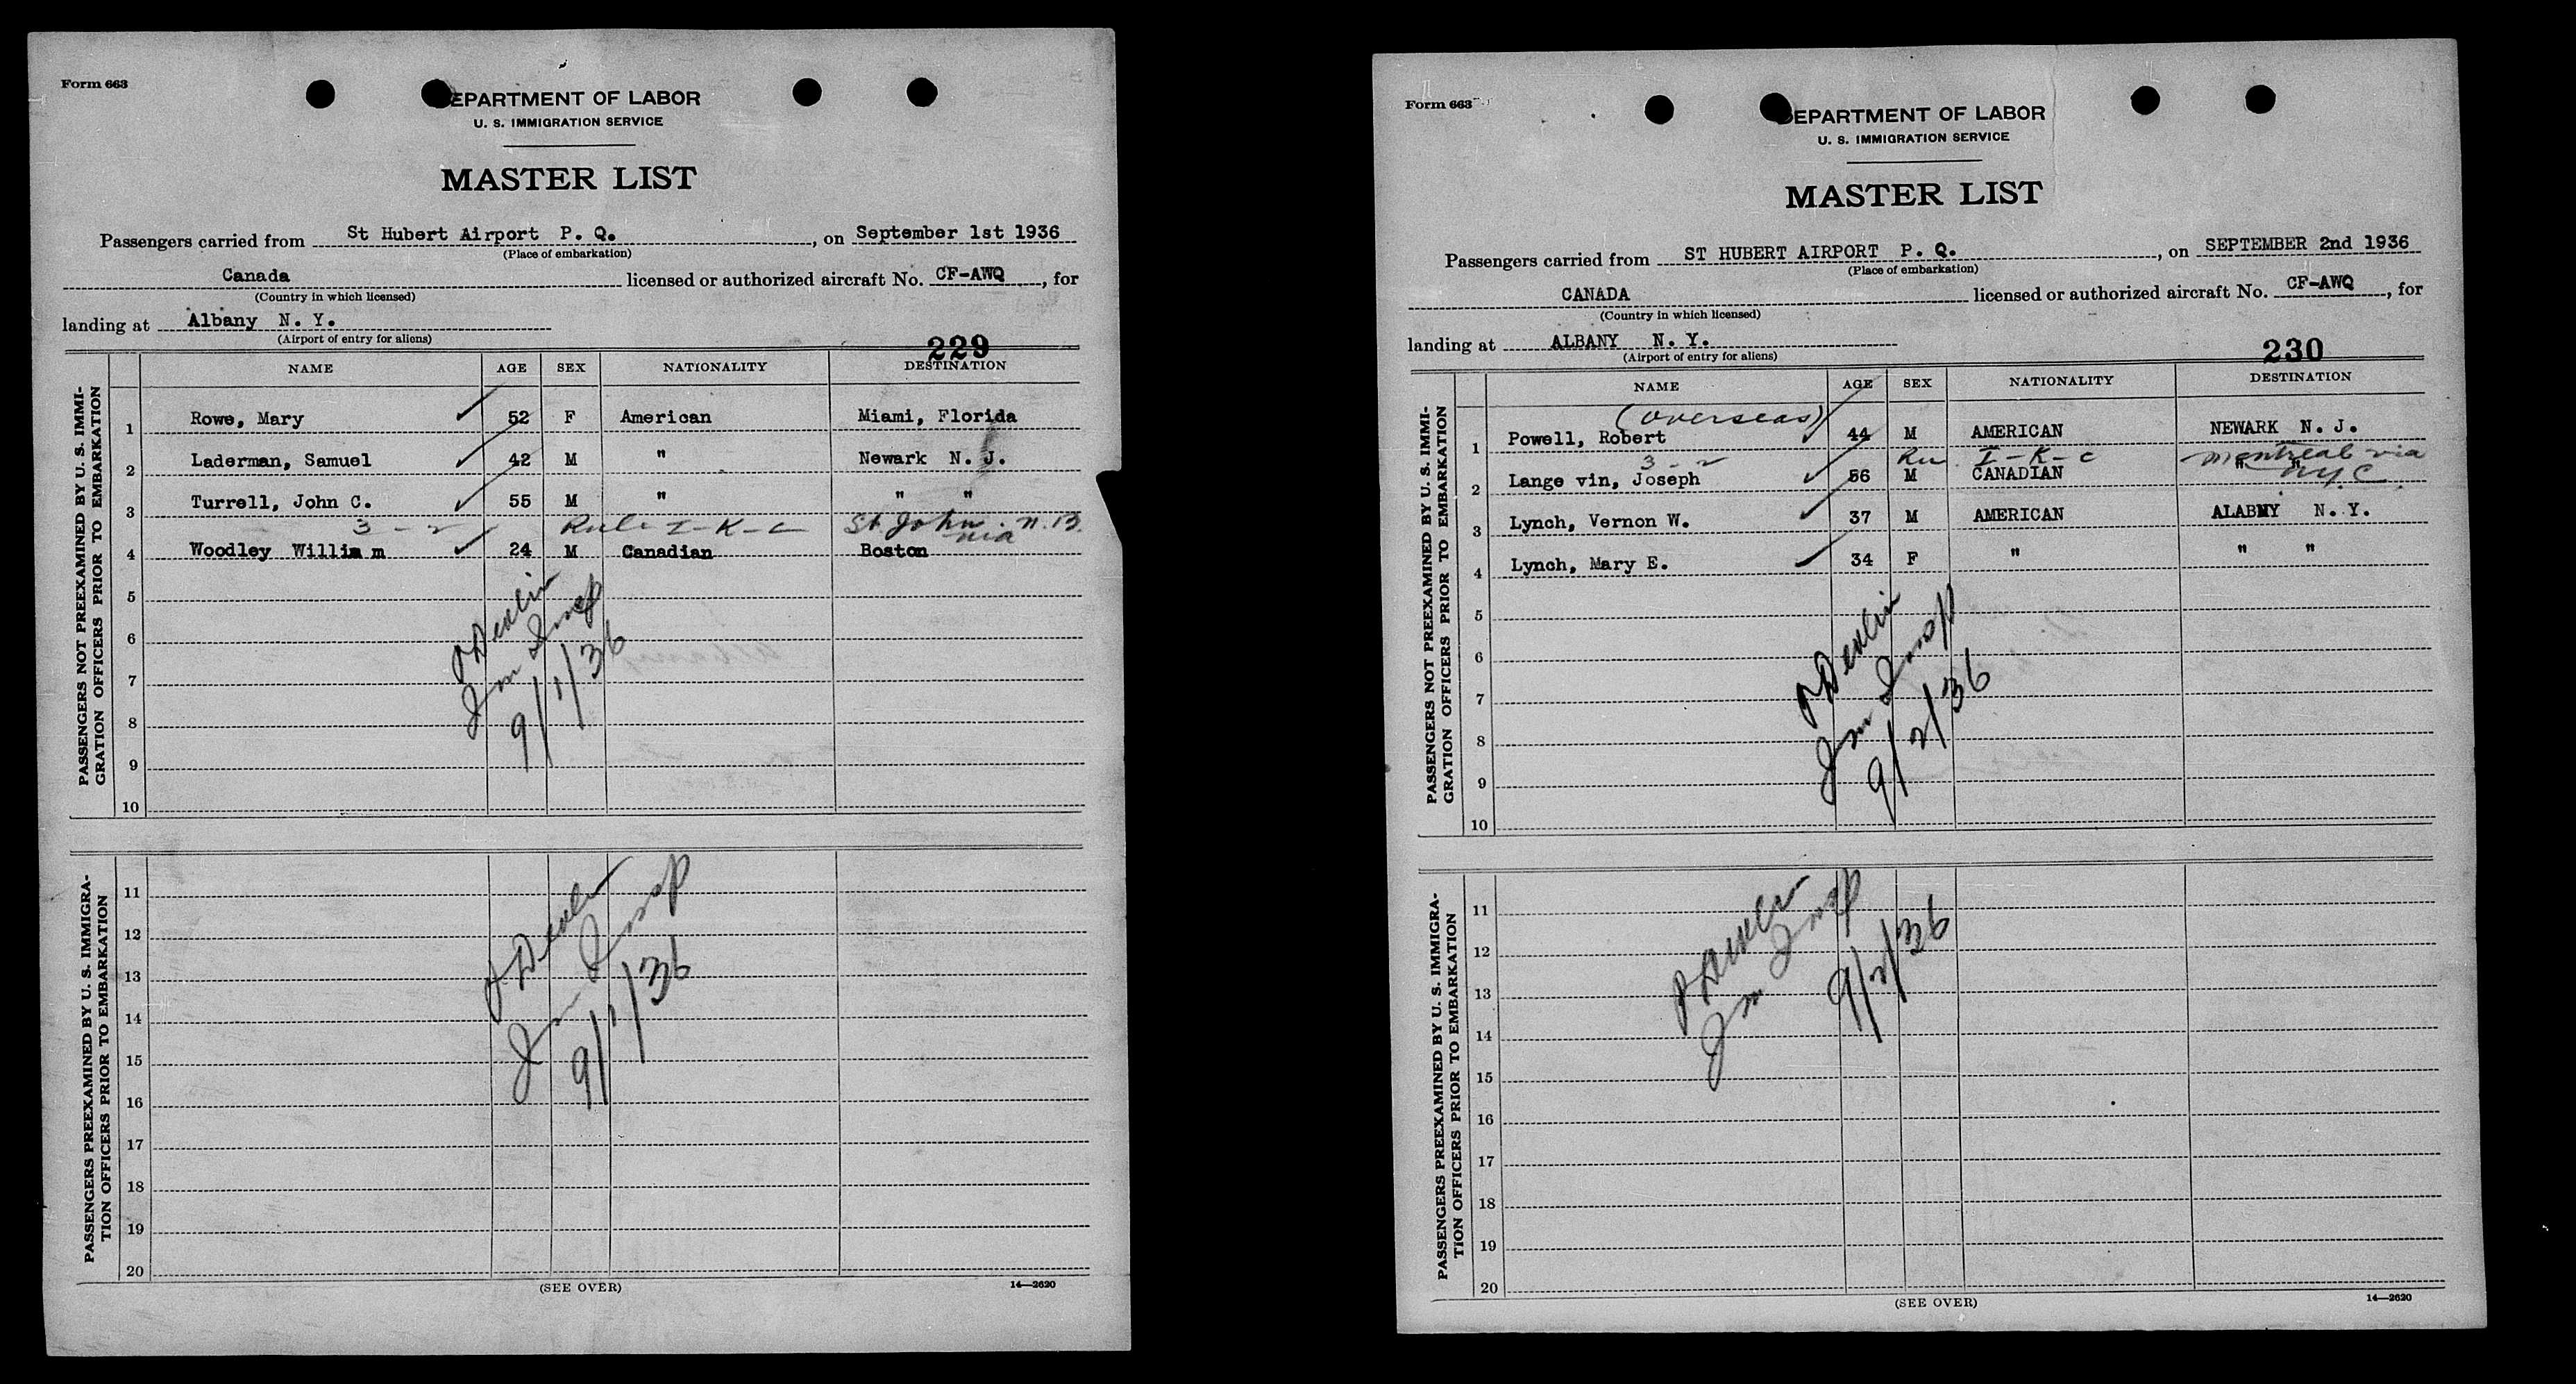 Form 663
DEPARTMENT OF LABOR
U. S. IMMIGRATION SERVICE
MASTER LIST
Passengers carried from St Hubert Airport P. Q., on September 1st 1936
(Place of embarkation)
Canada licensed or authorized aircraft No. CF-AWQ, for
(Country in which licensed)
landing at Albany N. Y.
(Airport of entry for aliens)
229
NAME AGE SEX NATIONALITY DESTINATION
PASSENGERS NOT PREEXAMINED BY U. S. IMMI-
GRATION OFFICERS PRIOR TO EMBARKATION
1 Rowe, Mary 52 F American Miami, Florida
2 Laderman, Samuel 42 M " Newark N. J.
3 Turrell, John C. 55 M " " "
3 - 2 Rule I-K-c St. John. N. B.
via
4 Woodley Willia m 24 M Canadian Boston
5
6
7
8
9
10
Devlin
Im Insp
9/1/36
PASSENGERS PREEXAMINED BY U. S. IMMIGRA-
TION OFFICERS PRIOR TO EMBARKATION
11
12
13
14
15
16
17
18
19
20
Devlin
Im Insp
9/1/36
(SEE OVER)
14—2620
Form 663
DEPARTMENT OF LABOR
U. S. IMMIGRATION SERVICE
MASTER LIST
Passengers carried from ST HUBERT AIRPORT P. Q., on SEPTEMBER 2nd 1936
(Place of embarkation)
CANADA licensed or authorized aircraft No. CF-AWQ, for
(Country in which licensed)
landing at ALBANY N. Y.
(Airport of entry for aliens)
230
NAME AGE SEX NATIONALITY DESTINATION
PASSENGERS NOT PREEXAMINED BY U. S. IMMI-
GRATION OFFICERS PRIOR TO EMBARKATION
(overseas)
1 Powell, Robert 44 M AMERICAN NEWARK N. J.
3 - 2 Ru I-K-c Montreal via
2 Lange vin, Joseph 56 M CANADIAN " "
N.Y.C.
3 Lynch, Vernon W. 37 M AMERICAN ALABNY N. Y.
4 Lynch, Mary E. 34 F " " "
5
6
7
8
9
10
Devlin
Im Insp
9/2/36
PASSENGERS PREEXAMINED BY U. S. IMMIGRA-
TION OFFICERS PRIOR TO EMBARKATION
11
12
13
14
15
16
17
18
19
20
Devlin
Im Insp
9/2/36
(SEE OVER)
14—2620